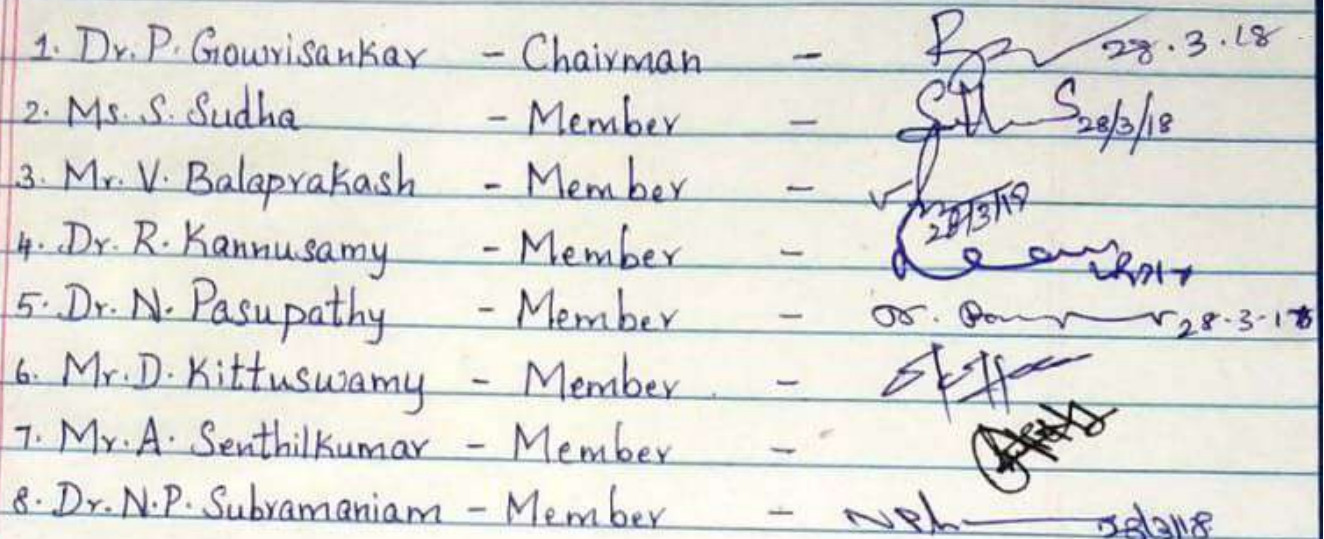 1. Dr. P. Gowrisankar - Chairman - 28.3.18
2. Ms. S. Sudha - Member - 28/3/18
3. Mr. V. Balaprakash - Member - 28/3/18
4. Dr. R. Kannusamy - Member -
5. Dr. N. Pasupathy - Member - 28-3-18
6. Mr. D. Kittuswamy - Member -
7. Mr. A. Senthilkumar - Member -
8. Dr. N.P. Subramaniam - Member - 28/3/18